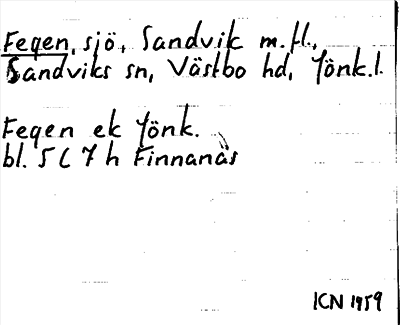 Fegen, sjö, Sandvik m.fl.,
Sandviks sn, Västbo hd, Jönk.l.
Fegen ek Jönk.
bl. 5 C 7 h Finnanäs
ICN 1959